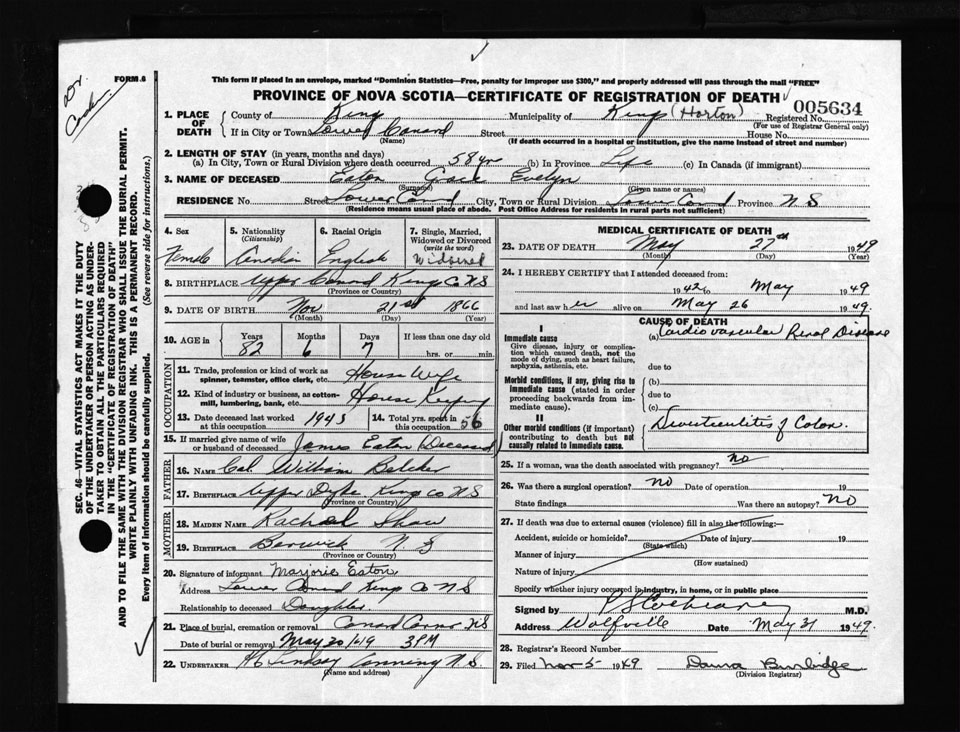 Dr.
Cochr
FORM 6
This form if placed in an envelope, marked "Dominion Statistics—Free, penalty for improper use $300," and properly addressed will pass through the mail "FREE"
PROVINCE OF NOVA SCOTIA—CERTIFICATE OF REGISTRATION OF DEATH
005634
1. PLACE OF DEATH
County of King Municipality of Kings (Horton) Registered No.
(For use of Registrar General only)
If in City or Town Lower Canard Street House No.
(Name)
(If death occurred in a hospital or institution, give the name instead of street and number)
2. LENGTH OF STAY (in years, months and days)
(a) In City, Town or Rural Division where death occurred 58 yr (b) in Province Life (c) In Canada (if immigrant)
3. NAME OF DECEASED Eaton Grace Evelyn
(Surname) (Given name or names)
RESIDENCE No. Street Lower Cand City, Town or Rural Division Lower Cand Province N S
(Residence means usual place of abode. Post Office Address for residents in rural parts not sufficient)
4. Sex
Female
5. Nationality
(Citizenship)
Canadian
6. Racial Origin
English
7. Single, Married, Widowed or Divorced
(write the word)
Widowed
8. BIRTHPLACE Upper Canard Kings Co N S
(Province or Country)
9. DATE OF BIRTH Nov 21st 1866
(Month) (Day) (Year)
10. AGE in Years Months Days If less than one day old
82 6 7 hrs. or min.
OCCUPATION
11. Trade, profession or kind of work as spinner, teamster, office clerk, etc. House Wife
12. Kind of industry or business, as cotton-mill, lumbering, bank, etc. House Keeping
13. Date deceased last worked at this occupation 1943
14. Total yrs. spent in this occupation 56
15. If married give name of wife or husband of deceased James Eaton Deceased
FATHER
16. NAME William Belcher
17. BIRTHPLACE Upper Dyke Kings Co N S
(Province or Country)
MOTHER
18. MAIDEN NAME Rachael Shaw
19. BIRTHPLACE Berwick N S
(Province or Country)
20. Signature of informant Marjorie Eaton
Address Lower Canard Kings Co N S
Relationship to deceased Daughter
21. Place of burial, cremation or removal Canard N S
Date of burial or removal May 30 1949 3 PM
22. UNDERTAKER Lindsay Canning N. S.
(Name and address)
MEDICAL CERTIFICATE OF DEATH
23. DATE OF DEATH May 27th 1949
(Month) (Day) (Year)
24. I HEREBY CERTIFY that I attended deceased from:
1942 to May 1949
and last saw her alive on May 26 1949.
CAUSE OF DEATH
I
Immediate cause
Give disease, injury or complication which caused death, not the mode of dying, such as heart failure, asphyxia, asthenia, etc.
(a) Cardiovascular Renal Disease
due to
Morbid conditions, if any, giving rise to immediate cause (stated in order proceeding backwards from immediate cause).
(b)
due to
(c)
II
Other morbid conditions (if important) contributing to death but not causally related to immediate cause.
Diverticulitis of Colon.
25. If a woman, was the death associated with pregnancy? no
26. Was there a surgical operation? NO Date of operation 19
State findings Was there an autopsy? NO
27. If death was due to external causes (violence) fill in also the following:—
Accident, suicide or homicide? Date of injury 19
(State which)
Manner of injury
(How sustained)
Nature of injury
Specify whether injury occured in industry, in home, or in public place
Signed by P S Cochrane M.D.
Address Wolfville Date May 31 1949.
28. Registrar's Record Number
29. Filed Nov 5 1949 Burbidge
(Division Registrar)
SEC. 46—VITAL STATISTICS ACT MAKES IT THE DUTY
OF THE UNDERTAKER OR PERSON ACTING AS UNDER-
TAKER TO OBTAIN ALL THE PARTICULARS REQUIRED
IN THE "CERTIFICATE OF REGISTRATION OF DEATH"
AND TO FILE THE SAME WITH THE DIVISION REGISTRAR WHO SHALL ISSUE THE BURIAL PERMIT.
WRITE PLAINLY WITH UNFADING INK. THIS IS A PERMANENT RECORD.
Every item of information should be carefully supplied. (See reverse side for instructions.)